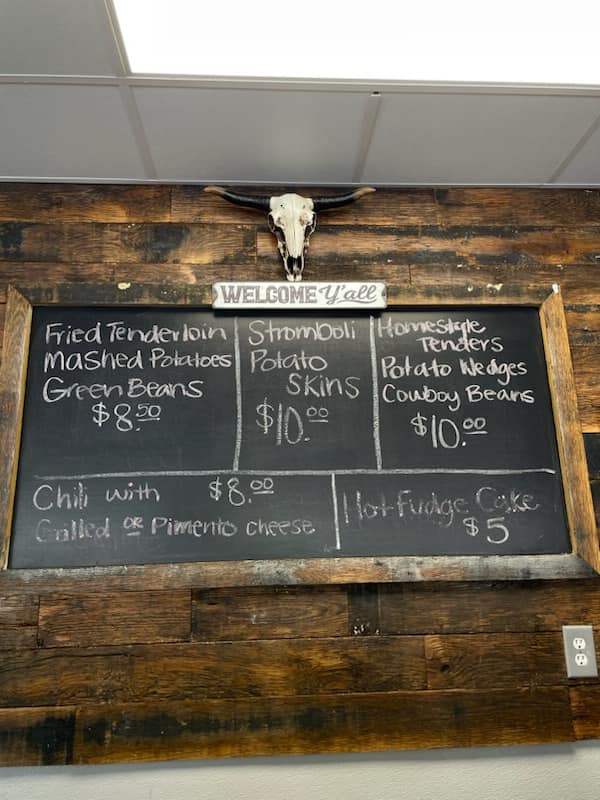 WELCOME Y'all
Fried Tenderloin
Mashed Potatoes
Green Beans
$8.50
Stromboli
Potato
Skins
$10.00
Homestyle
Tenders
Potato Wedges
Cowboy Beans
$10.00
Chili with $8.00
Grilled or Pimento cheese
Hot Fudge Cake
$5